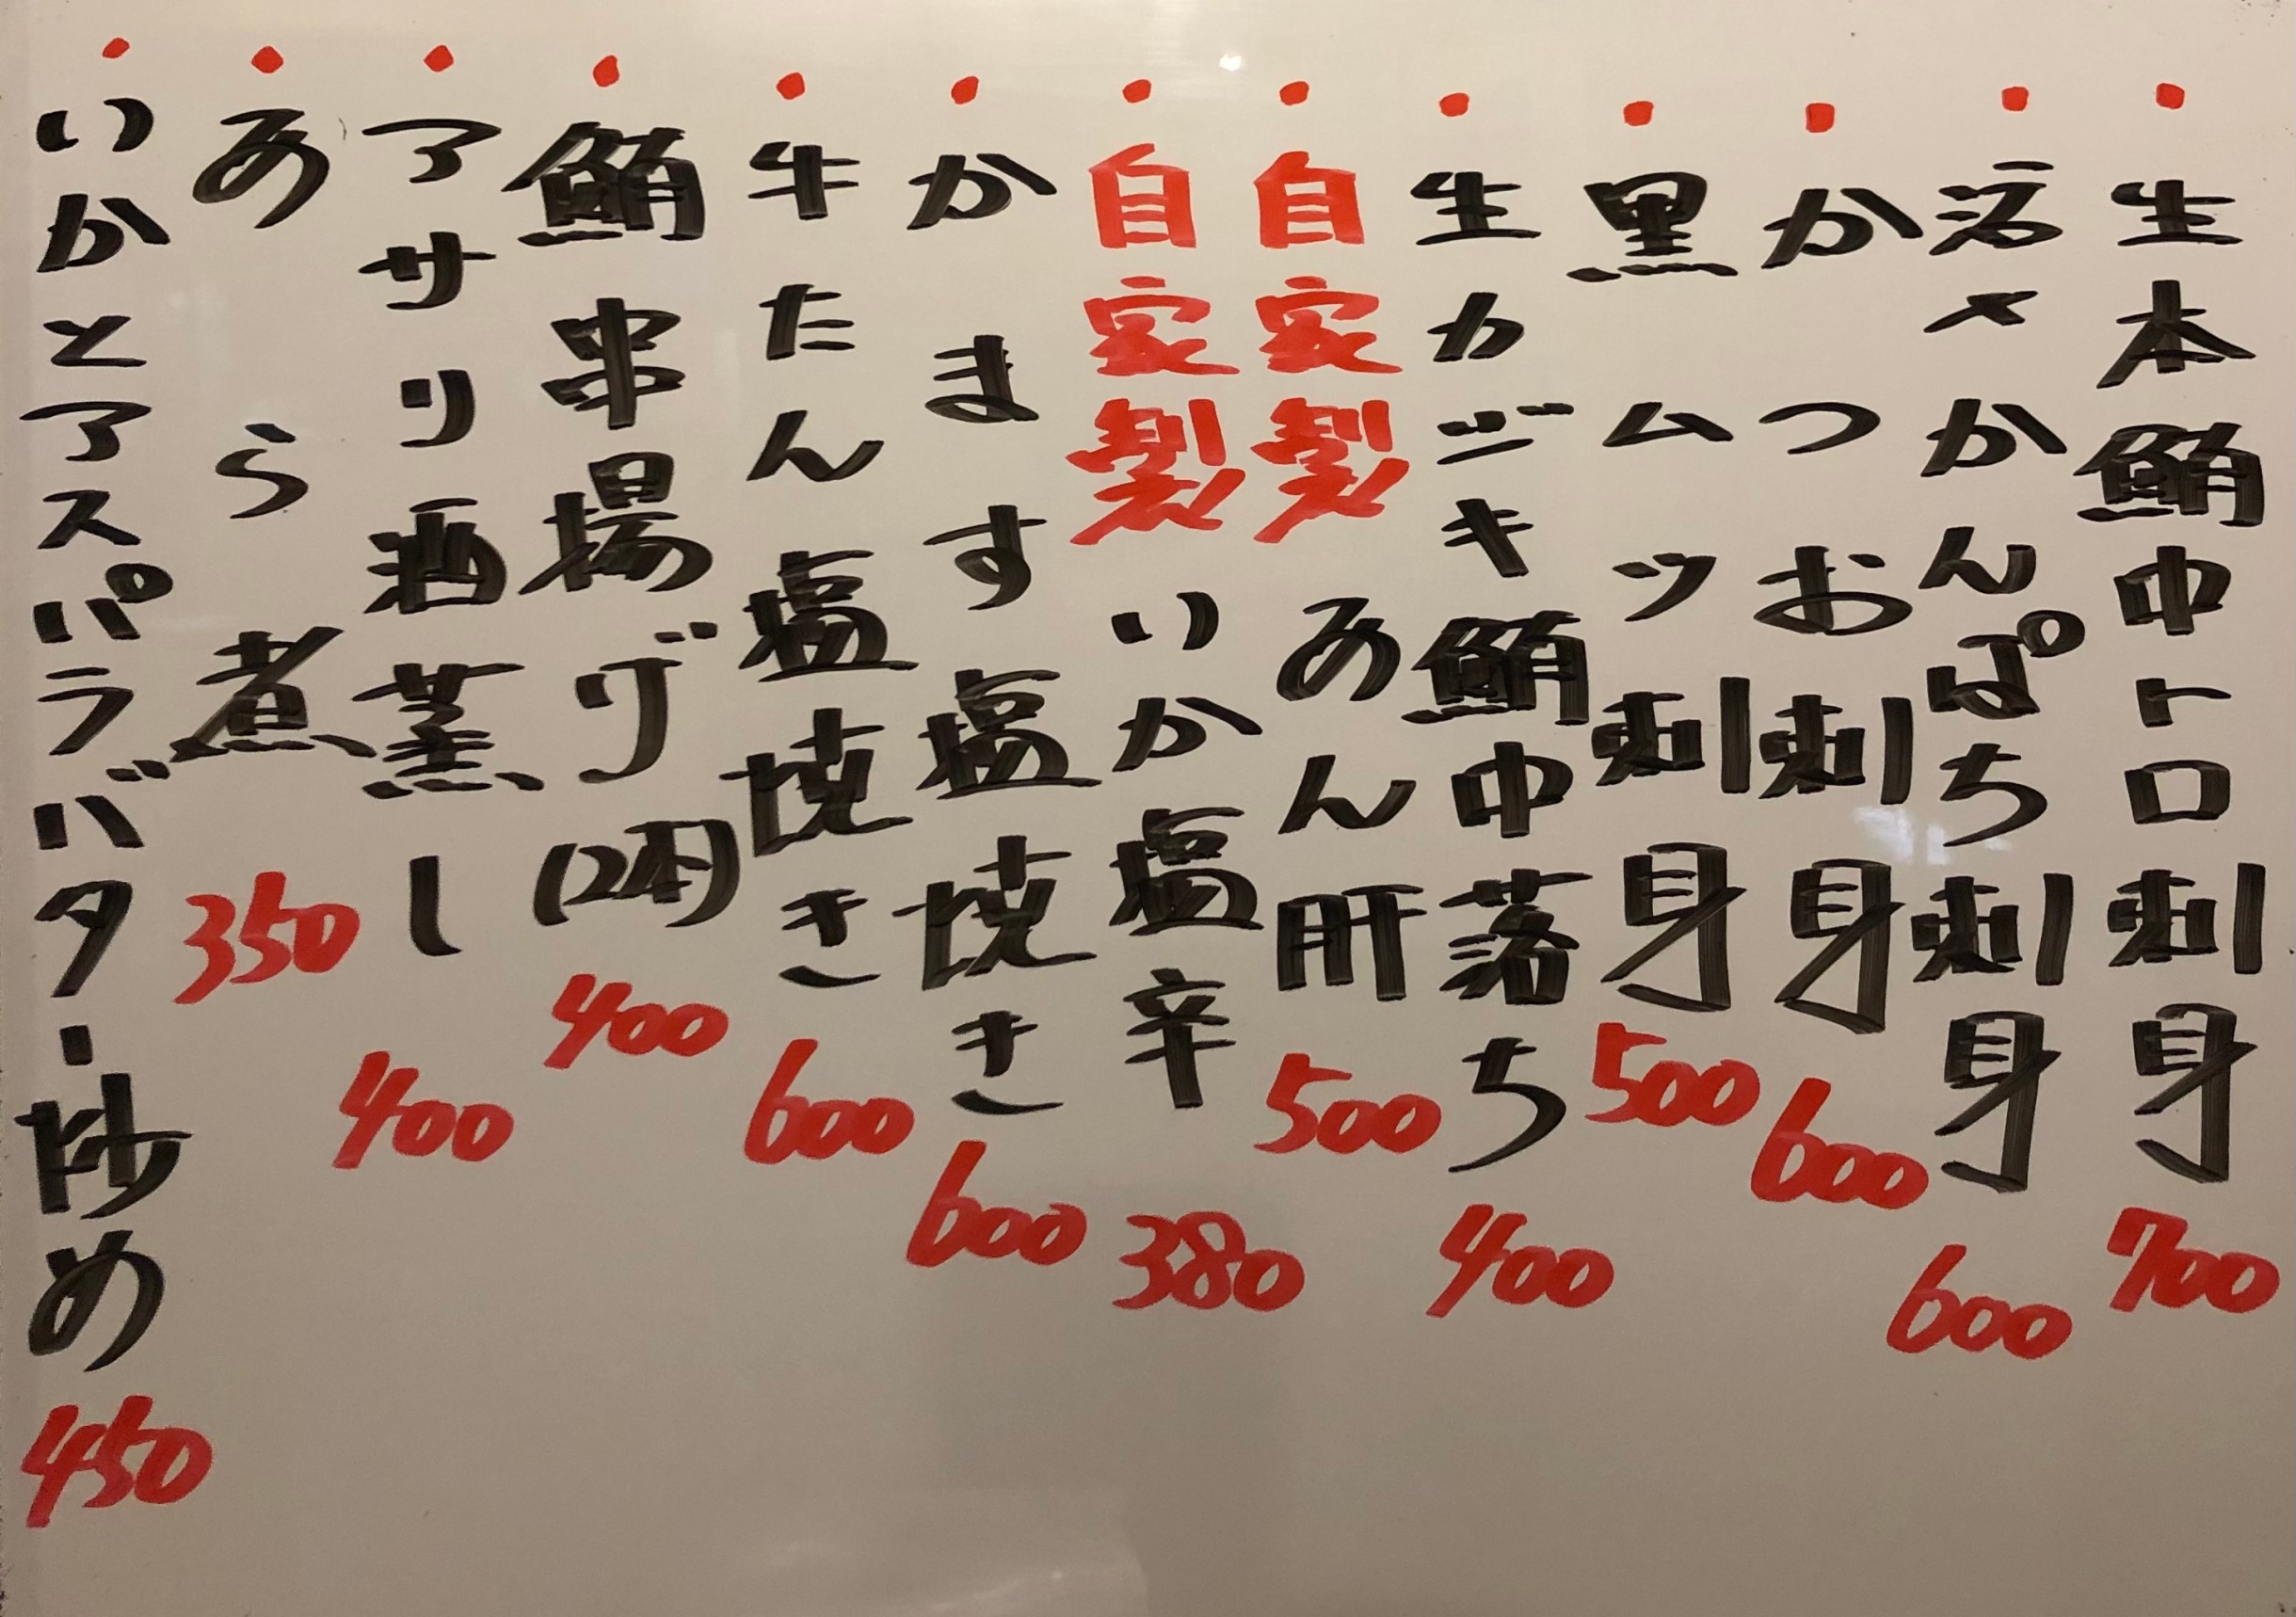 ・生本鮪中トロ刺身 700
・活〆かんぱち刺身 600
・かつお刺身 600
・黒ムツ刺身 500
・生カジキ鮪中落ち 400
・自家製あん肝 500
・自家製いか塩辛 380
・かます塩焼き 600
・牛たん塩焼き 600
・鮪串揚げ(2本) 400
・アサリ酒蒸し 400
・あら煮 350
・いかとアスパラバター炒め 450